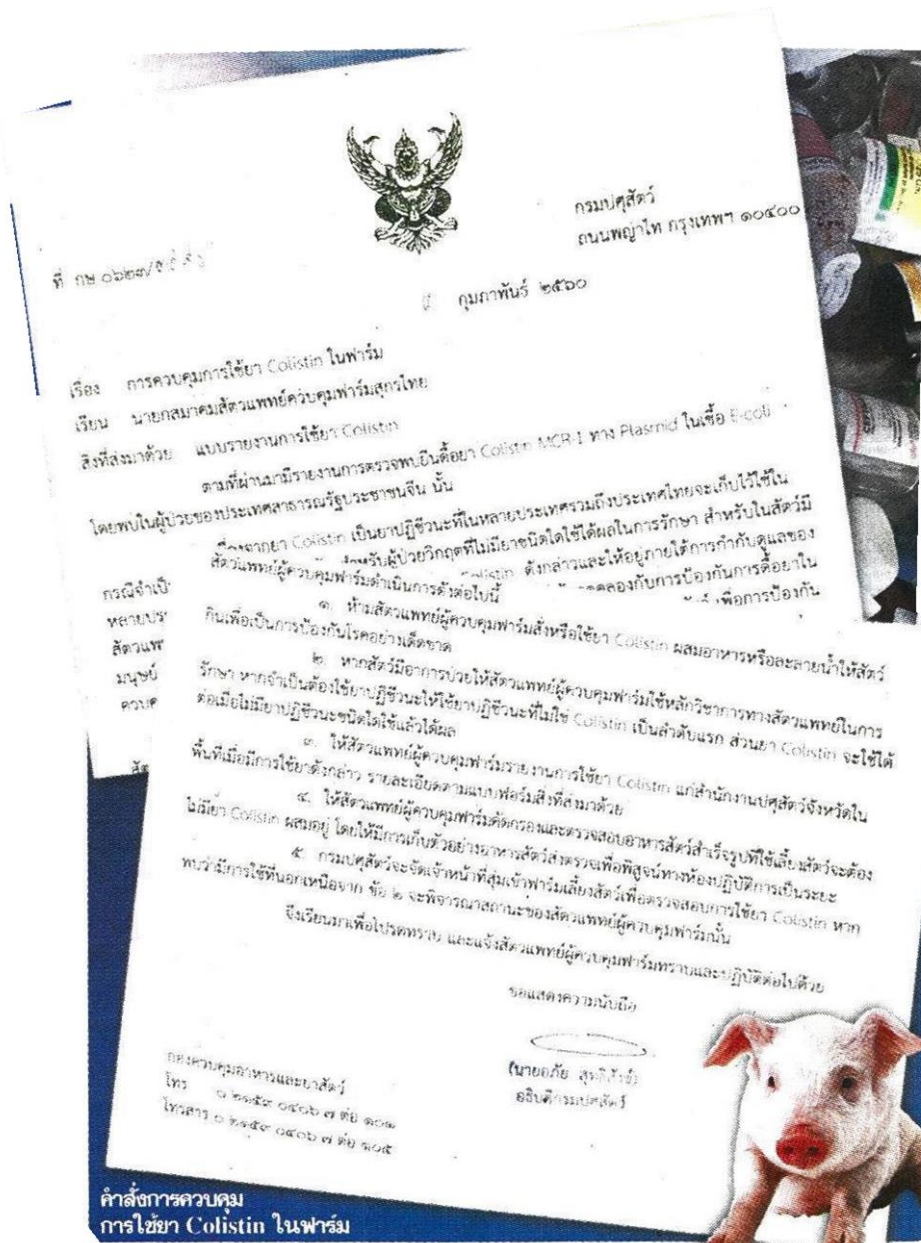 กรมปศุสัตว์
ถนนพญาไท กรุงเทพฯ ๑๐๔๐๐
ที่ กษ ๐๖๒๓/
กุมภาพันธ์ ๒๕๖๐
เรื่อง การควบคุมการใช้ยา Colistin ในฟาร์ม
เรียน นายกสมาคมสัตวแพทย์ควบคุมฟาร์มสุกรไทย
สิ่งที่ส่งมาด้วย แบบรายงานการใช้ยา Colistin
ตามที่ผ่านมามีรายงานการตรวจพบยีนดื้อยา Colistin MCR-1 ทาง Plasmid ในเชื้อ E-coli
โดยพบในผู้ป่วยของประเทศสาธารณรัฐประชาชนจีน นั้น
ยา Colistin เป็นยาปฏิชีวนะที่ในหลายประเทศรวมถึงประเทศไทยจะเก็บไว้ใช้ใน
กรณีจำเป็ ผู้ป่วยวิกฤตที่ไม่มียาชนิดใดใช้ได้ผลในการรักษา สำหรับในสัตว์มี
หลายประ ดังกล่าวและให้อยู่ภายใต้การกำกับดูแลของ
สัตวแพ การป้องกันการดื้อยาใน
มนุษย์ เพื่อการป้องกัน
ควบค
สัต
สัตวแพทย์ผู้ควบคุมฟาร์มดำเนินการดังต่อไปนี้
๑. ห้ามสัตวแพทย์ผู้ควบคุมฟาร์มสั่งหรือใช้ยา Colistin ผสมอาหารหรือละลายน้ำให้สัตว์
กินเพื่อเป็นการป้องกันโรคอย่างเด็ดขาด
๒. หากสัตว์มีอาการป่วยให้สัตวแพทย์ผู้ควบคุมฟาร์มใช้หลักวิชาการทางสัตวแพทย์ในการ
รักษา หากจำเป็นต้องใช้ยาปฏิชีวนะให้ใช้ยาปฏิชีวนะที่ไม่ใช่ Colistin เป็นลำดับแรก ส่วนยา Colistin จะใช้ได้
ต่อเมื่อไม่มียาปฏิชีวนะชนิดใดใช้แล้วได้ผล
๓. ให้สัตวแพทย์ผู้ควบคุมฟาร์มรายงานการใช้ยา Colistin แก่สำนักงานปศุสัตว์จังหวัดใน
พื้นที่เมื่อมีการใช้ยาดังกล่าว รายละเอียดตามแบบฟอร์มสิ่งที่ส่งมาด้วย
๔. ให้สัตวแพทย์ผู้ควบคุมฟาร์มคัดกรองและตรวจสอบอาหารสัตว์สำเร็จรูปที่ใช้เลี้ยงสัตว์จะต้อง
ไม่มียา Colistin ผสมอยู่ โดยให้มีการเก็บตัวอย่างอาหารสัตว์ส่งตรวจเพื่อพิสูจน์ทางห้องปฏิบัติการเป็นระยะ
๕. กรมปศุสัตว์จะจัดเจ้าหน้าที่สุ่มเข้าฟาร์มเลี้ยงสัตว์เพื่อตรวจสอบการใช้ยา Colistin หาก
พบว่ามีการใช้ที่นอกเหนือจาก ข้อ ๒ จะพิจารณาสถานะของสัตวแพทย์ผู้ควบคุมฟาร์มนั้น
จึงเรียนมาเพื่อโปรดทราบ และแจ้งสัตวแพทย์ผู้ควบคุมฟาร์มทราบและปฏิบัติต่อไปด้วย
ขอแสดงความนับถือ
(นายอภัย
อธิบดีกรมปศุสัตว์
กองควบคุมอาหารและยาสัตว์
โทร ๐ ๒๑๕๙ ๐๔๐๖ ๗ ต่อ ๑๐๑
โทรสาร ๐ ๒๑๕๙ ๐๔๐๖ ๗ ต่อ ๑๐๕
คำสั่งการควบคุม
การใช้ยา Colistin ในฟาร์ม